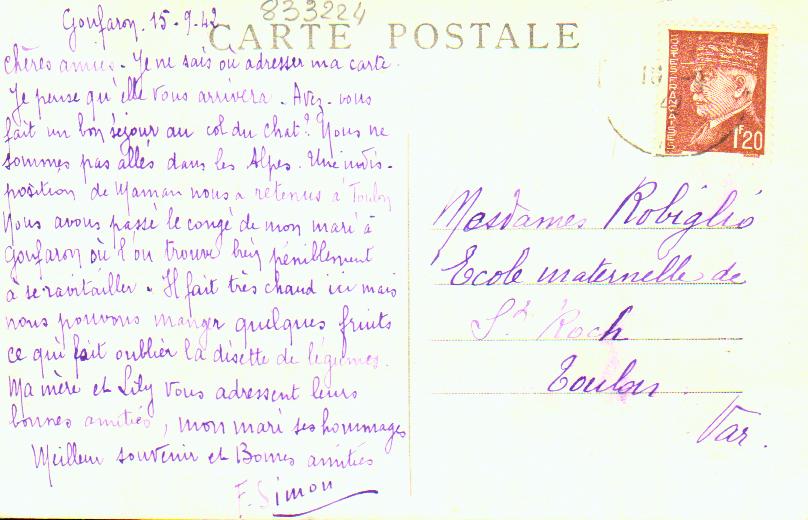 833224
CARTE POSTALE
Gonfaron. 15-9-42
Chères amies. Je ne sais où adresser ma carte.
Je pense qu'elle vous arrivera. Avez-vous
fait un bon séjour au col du chat? Nous ne
sommes pas allés dans les Alpes. Une indis-
position de Maman nous a retenus à Toulon
Nous avons passé le congé de mon mari à
Gonfaron où l'on trouve bien péniblement
à se ravitailler. Il fait très chaud ici mais
nous pouvons manger quelques fruits
ce qui fait oublier la disette de légumes.
Ma mère et Lily vous adressent leurs
bonnes amitiés, mon mari ses hommages
Meilleur souvenir et Bonnes amitiés
F. Simon
POSTES FRANÇAISES
1F20
Mesdames Robiglio
Ecole maternelle de
St Roch
Toulon
Var.